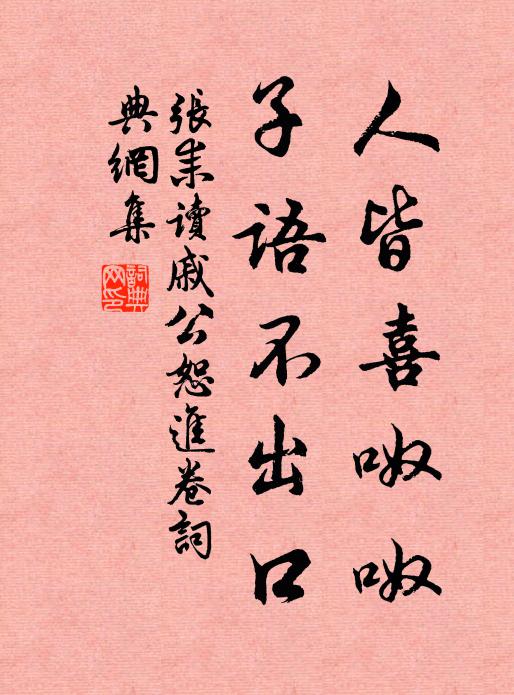 人皆喜呶呶
子語不出口
張耒讀戚公恕進卷詞
典網集
詞典網印